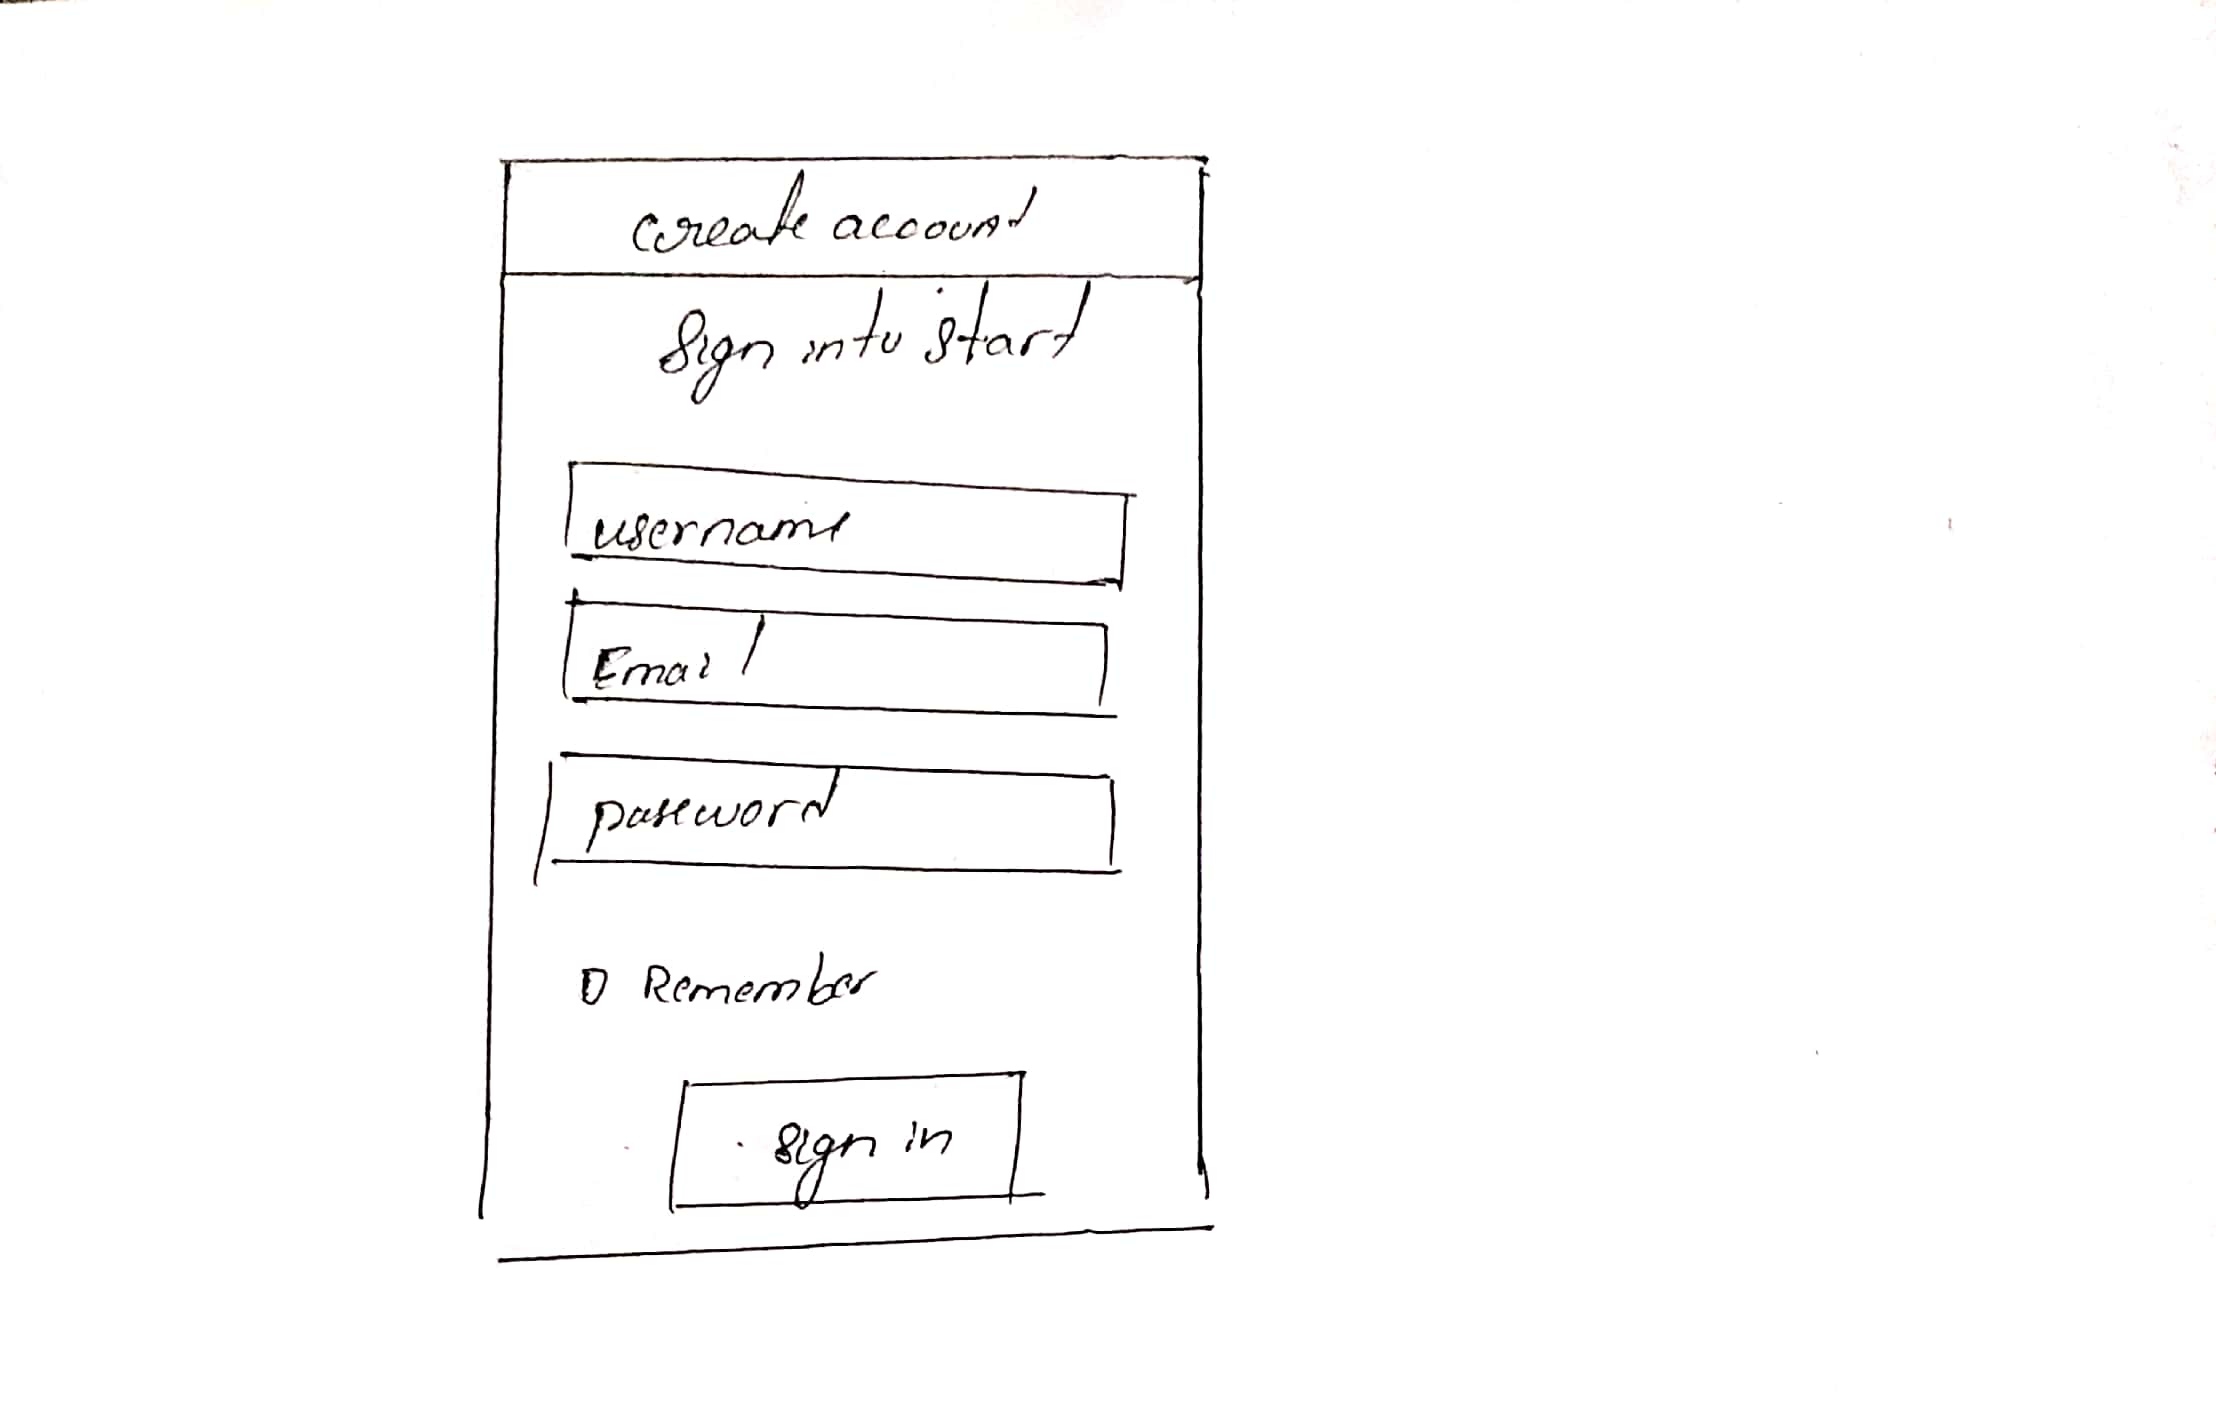 create account
Sign into start
username
Email
password
Remember
sign in